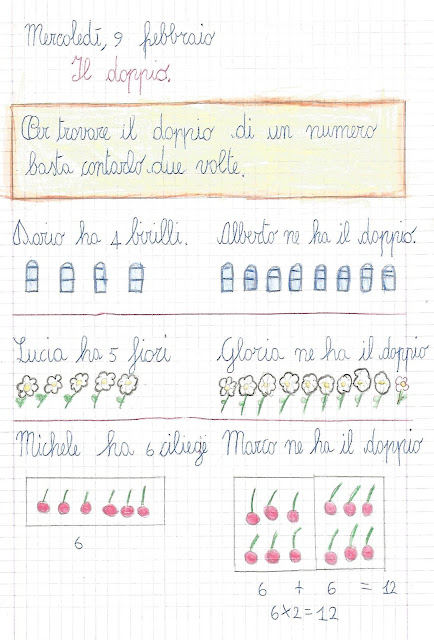 Mercoledì, 9 febbraio
Il doppio.
Per trovare il doppio di un numero
basta contarlo due volte.
Dario ha 4 birilli. Alberto ne ha il doppio.
Lucia ha 5 fiori Gloria ne ha il doppio
Michele ha 6 ciliege Marco ne ha il doppio
6
6 + 6 = 12
6×2=12